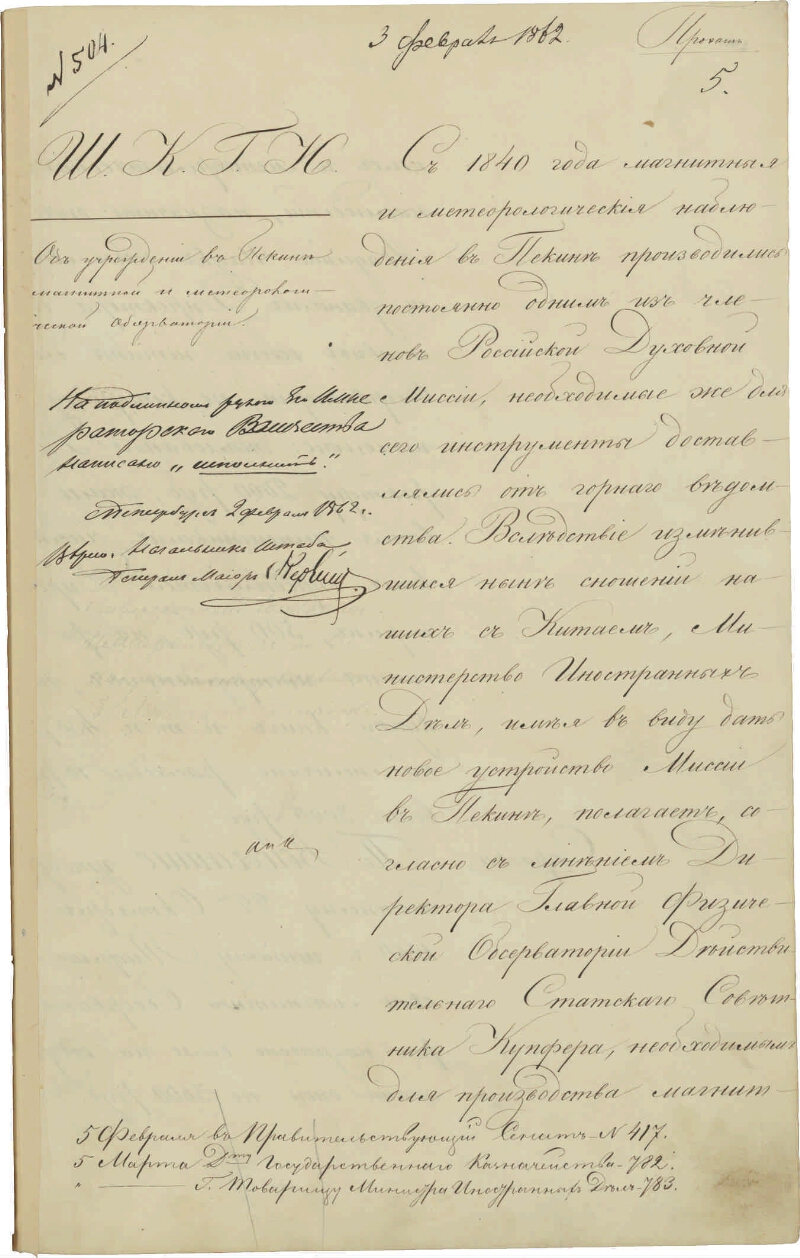 N 504.
3 февраля 1862.
5.
Ш. К. Г. И.
Объ учрежденіи въ Пекинѣ
магнитной и метеорологи-
ческой обсерваторіи.
На подлинномъ рукою Его Импе
раторскаго Величества
написано „исполнить".
Петербургъ 2 февраля 1862 г.
Начальникъ Штаба,
Генералъ Маіоръ
Съ 1840 года магнитныя
и метеорологическія наблю-
денія въ Пекинѣ производились
постоянно однимъ изъ чле-
новъ Россійской Духовной
Миссіи, необходимые же для
сего инструменты достав-
лялись отъ горнаго вѣдом-
ства. Вслѣдствіе измѣнив-
шихся нынѣ сношеній на-
шихъ съ Китаемъ, Ми-
нистерство Иностранныхъ
Дѣлъ, имѣя въ виду дать
новое устройство Миссіи
въ Пекинѣ, полагаетъ, со-
гласно съ мнѣніемъ Ди-
ректора Главной Физиче-
ской Обсерваторіи Дѣйстви-
тельнаго Статскаго Совѣт-
ника Купфера, необходимымъ
для производства магнит-
5 Февраля въ Правительствующій Сенатъ N 417.
5 Марта Д-ту Государственнаго Казначейства - 782.
" — Г. Товарищу Министра Иностранныхъ Дѣлъ - 783.